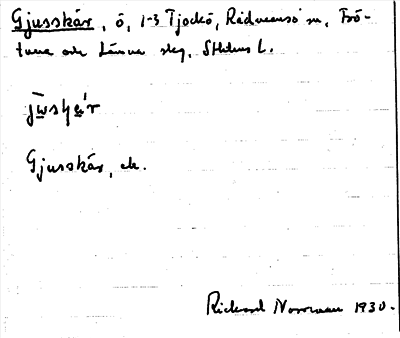 Gjusskär, ö, 1-3 Tjockö, Rådmansö sn, Frö-
tuna och Länna skg, Sthlms l.
jūsʂæ̀r
Gjusskär, ek.
Rickard Norrman 1930.